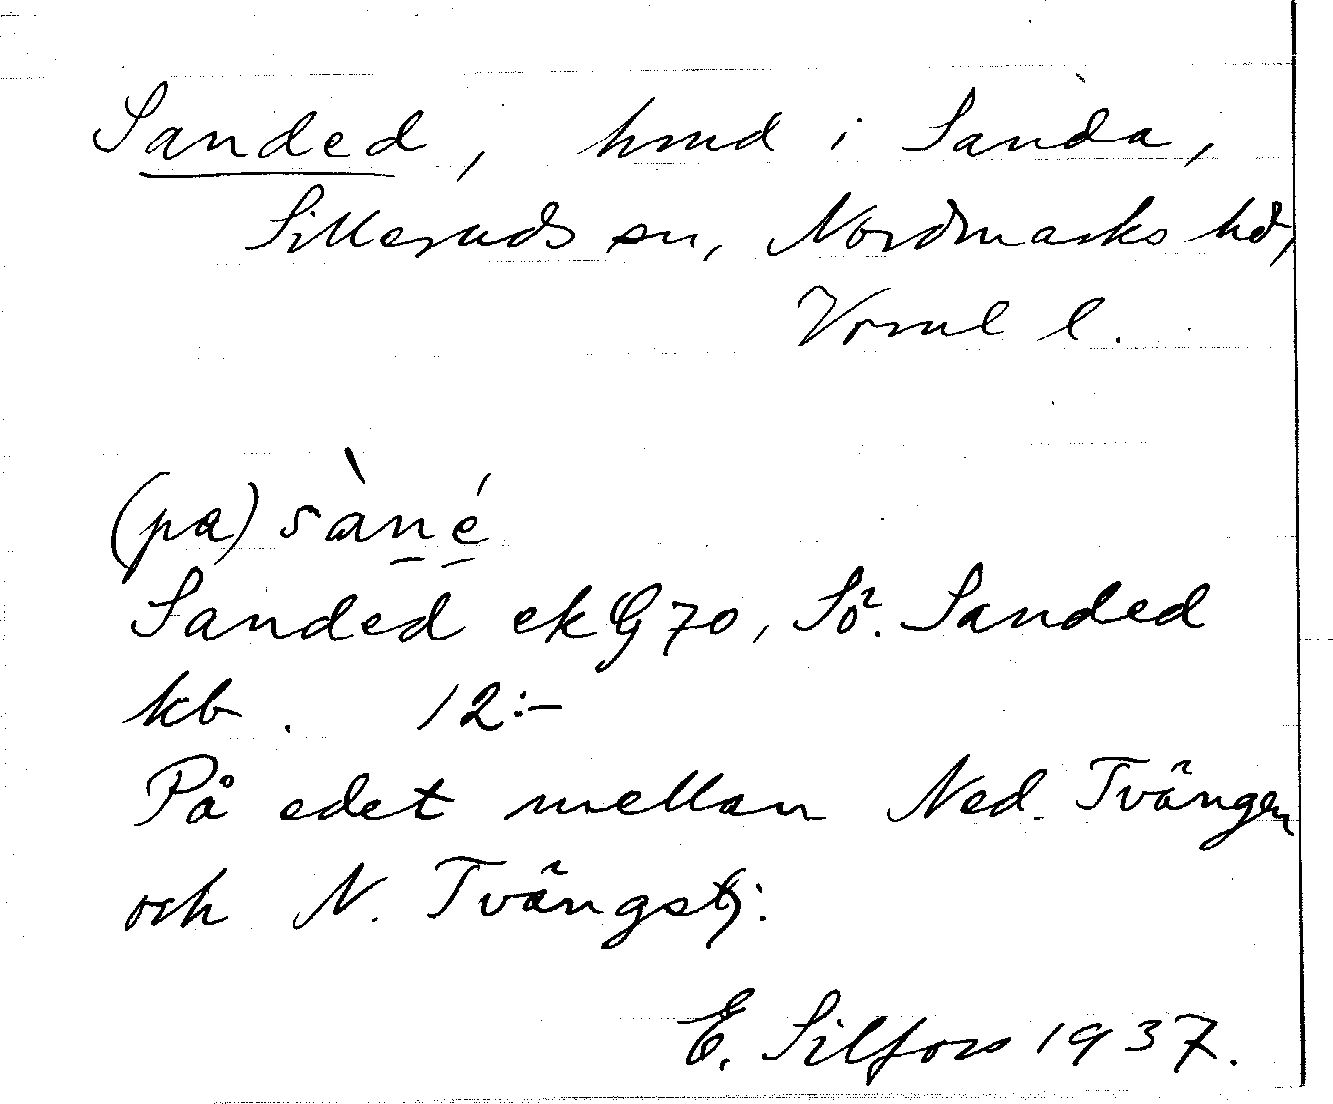 Sanded, hmd i Sanda,
Silleruds sn, Nordmarks hd,
Vrml l.
(pa) sàné
Sanded ek G 70, Sö. Sanded
kb. 12:-
På edet mellan Ned. Tvängen
och N. Tvängstj:
E. Silfors 1937.